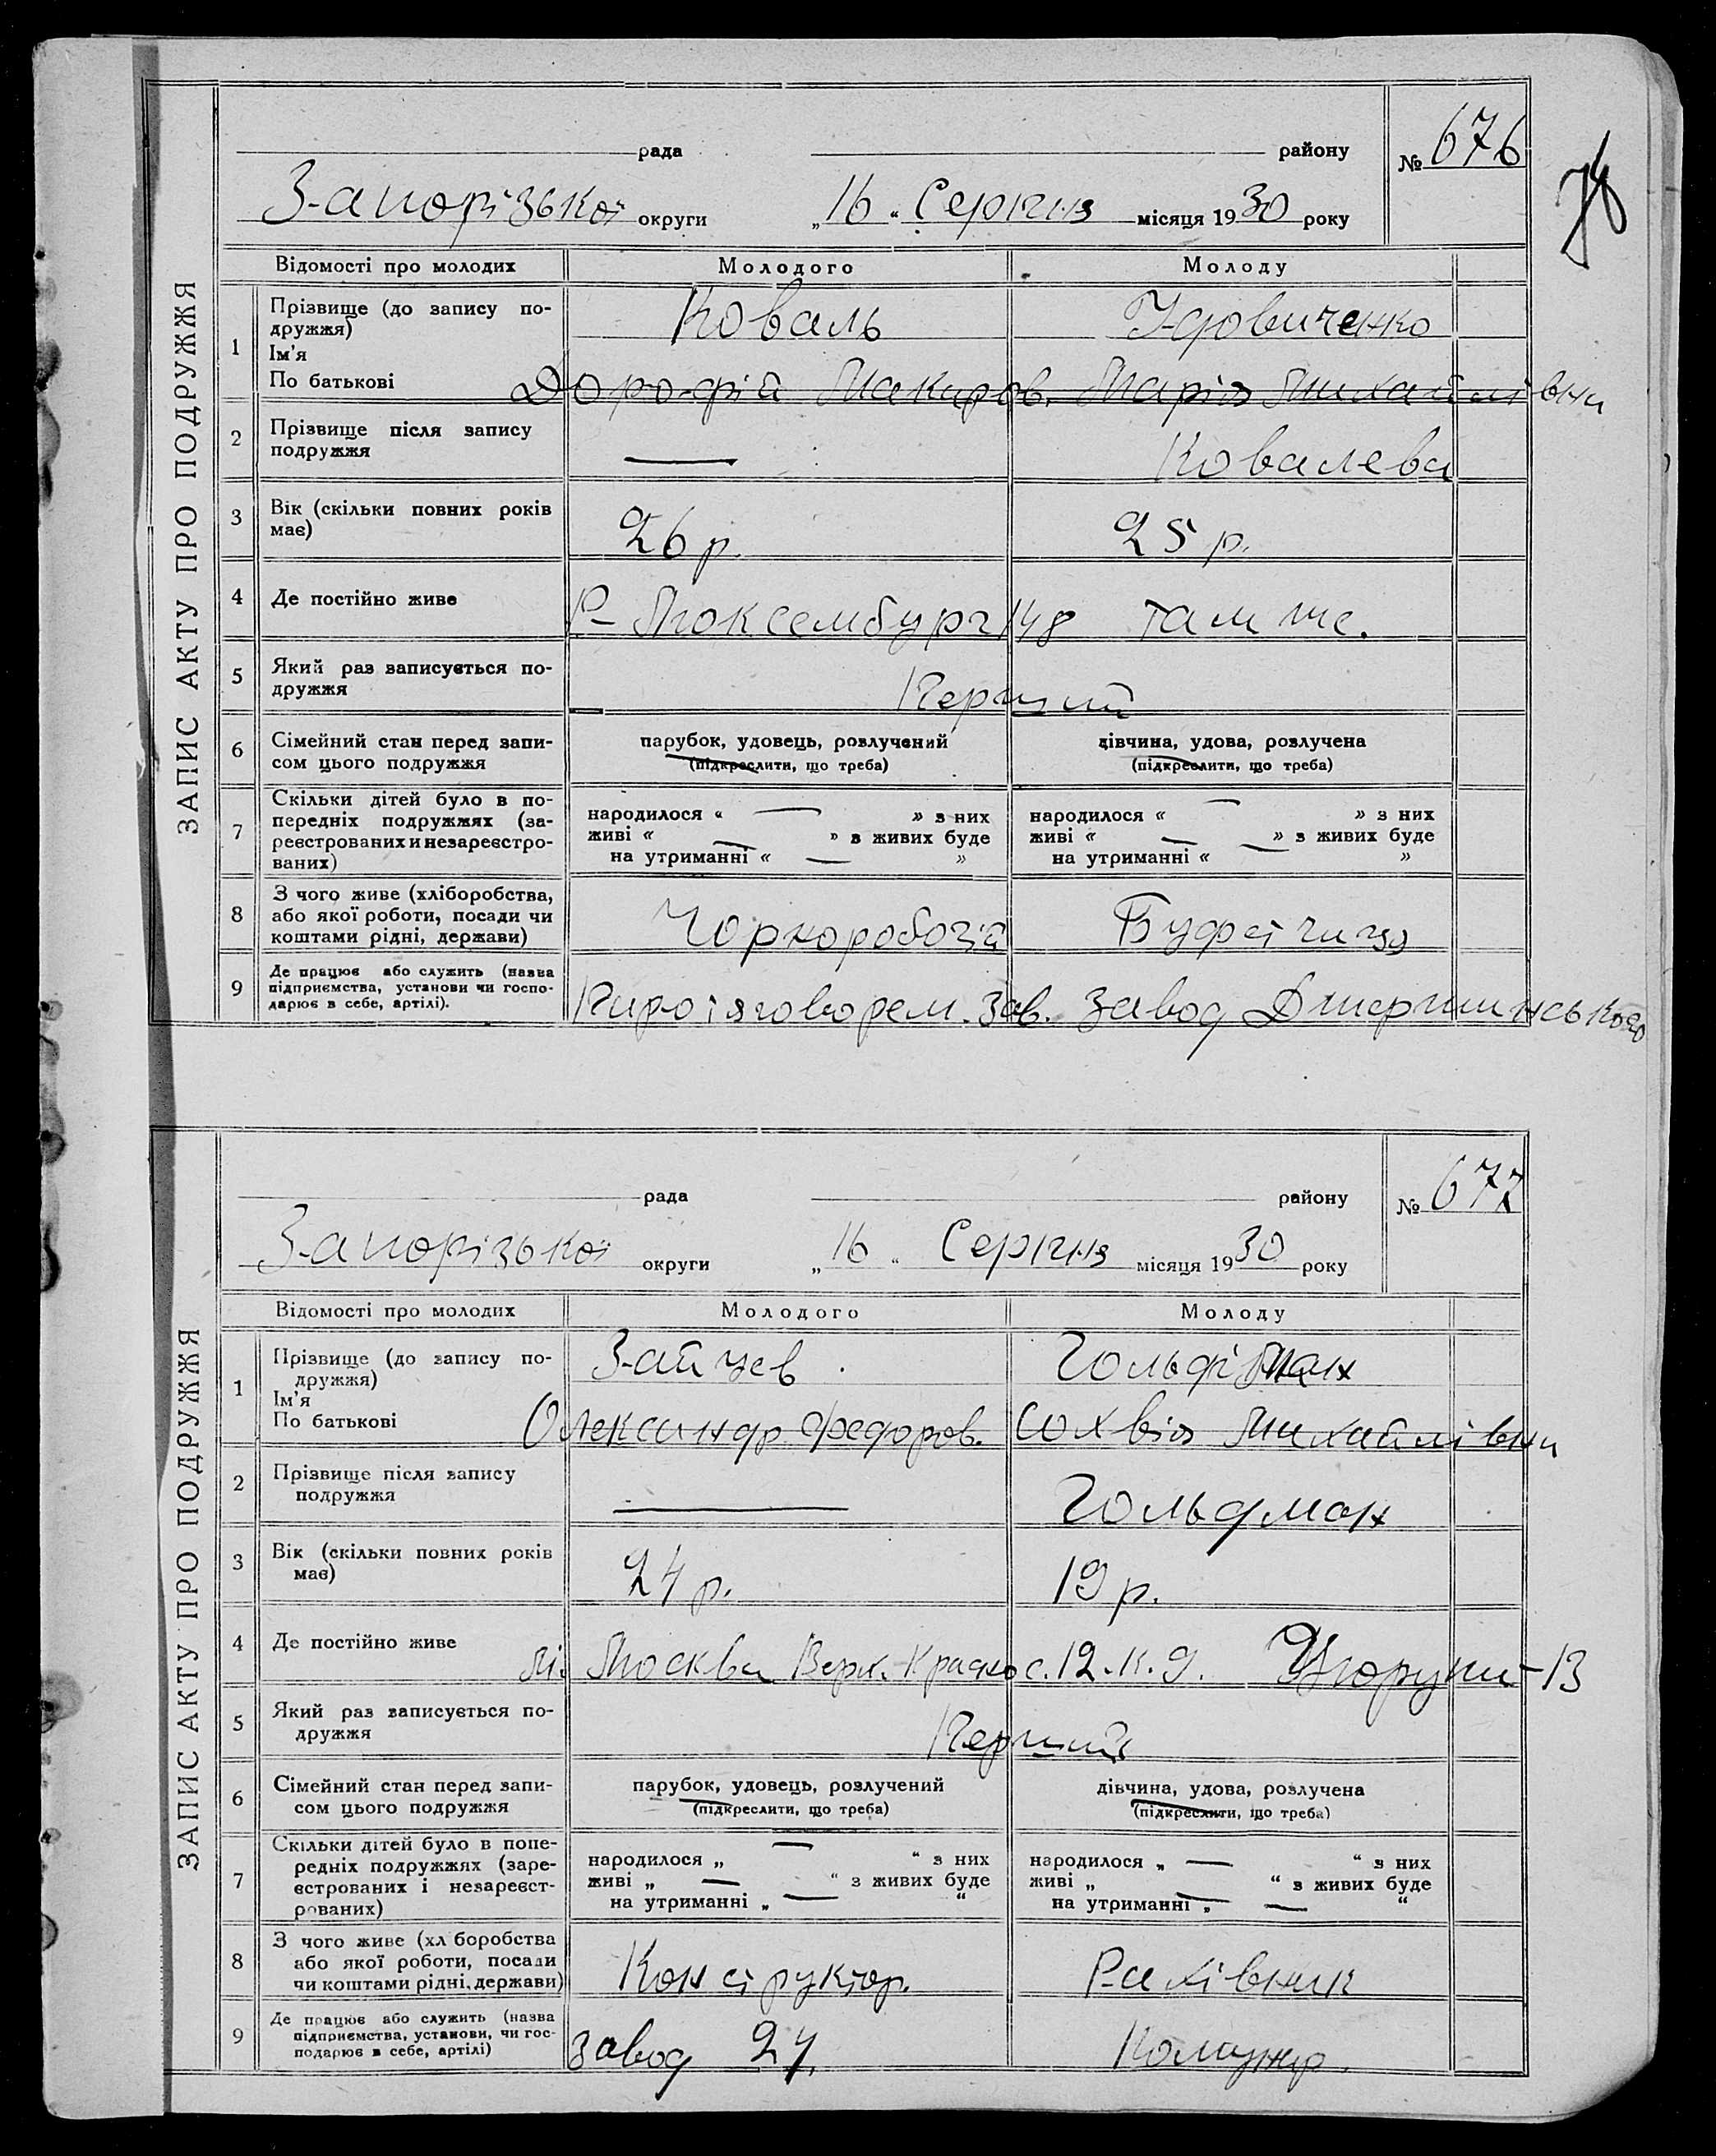 ЗАПИС АКТУ ПРО ПОДРУЖЖЯ
рада району № 676
78
Запорізької округи „16“ Серпня місяця 1930 року
Відомості про молодих Молодого Молоду
1 Прізвище (до запису подружжя) Коваль Удовиченко
Ім'я
По батькові Дорофій Макаров. Марія Михайлівни
2 Прізвище після запису подружжя — Ковалева
3 Вік (скільки повних років має) 26 р. 25 р.
4 Де постійно живе Р-Люксембург 148 там же.
5 Який раз записується подружжя Перший
6 Сімейний стан перед записом цього подружжя парубок, удовець, розлучений дівчина, удова, розлучена
(підкреслити, що треба) (підкреслити, що треба)
7 Скільки дітей було в попередніх подружжях (зареєстрованих и незареєстрованих)
народилося « — » з них народилося « — » з них
живі « — » з живих буде живі « — » з живих буде
на утриманні « — » на утриманні « — »
8 З чого живе (хліборобства, або якої роботи, посади чи коштами рідні, держави) Чорноробочій Буфетчиця
9 Де працює або служить (назва підприємства, установи чи господарює в себе, артілі). Паротяговорем. зав. завод Джержинського
ЗАПИС АКТУ ПРО ПОДРУЖЖЯ
рада району № 677
Запорізької округи „16“ Серпня місяця 1930 року
Відомості про молодих Молодого Молоду
1 Прізвище (до запису подружжя) Зайцев
Ім'я
По батькові Олександр Федоров. Сохвія Михайлівни
2 Прізвище після запису подружжя — Гольдман
3 Вік (скільки повних років має) 24 р. 19 р.
4 Де постійно живе м. Москва Верх. Краснос. 12. к. 9. -13
5 Який раз записується подружжя Перший
6 Сімейний стан перед записом цього подружжя парубок, удовець, розлучений дівчина, удова, розлучена
(підкреслити, що треба) (підкреслити, що треба)
7 Скільки дітей було в попередніх подружжях (зареєстрованих і незареєстрованих)
народилося „ — “ з них народилося „ — “ з них
живі „ — “ з живих буде живі „ — “ з живих буде
на утриманні „ — “ на утриманні „ — “
8 З чого живе (хліборобства або якої роботи, посади чи коштами рідні, держави) Конструктор. Рахівник
9 Де працює або служить (назва підприємства, установи, чи господарює в себе, артілі) завод 24. Комунар.